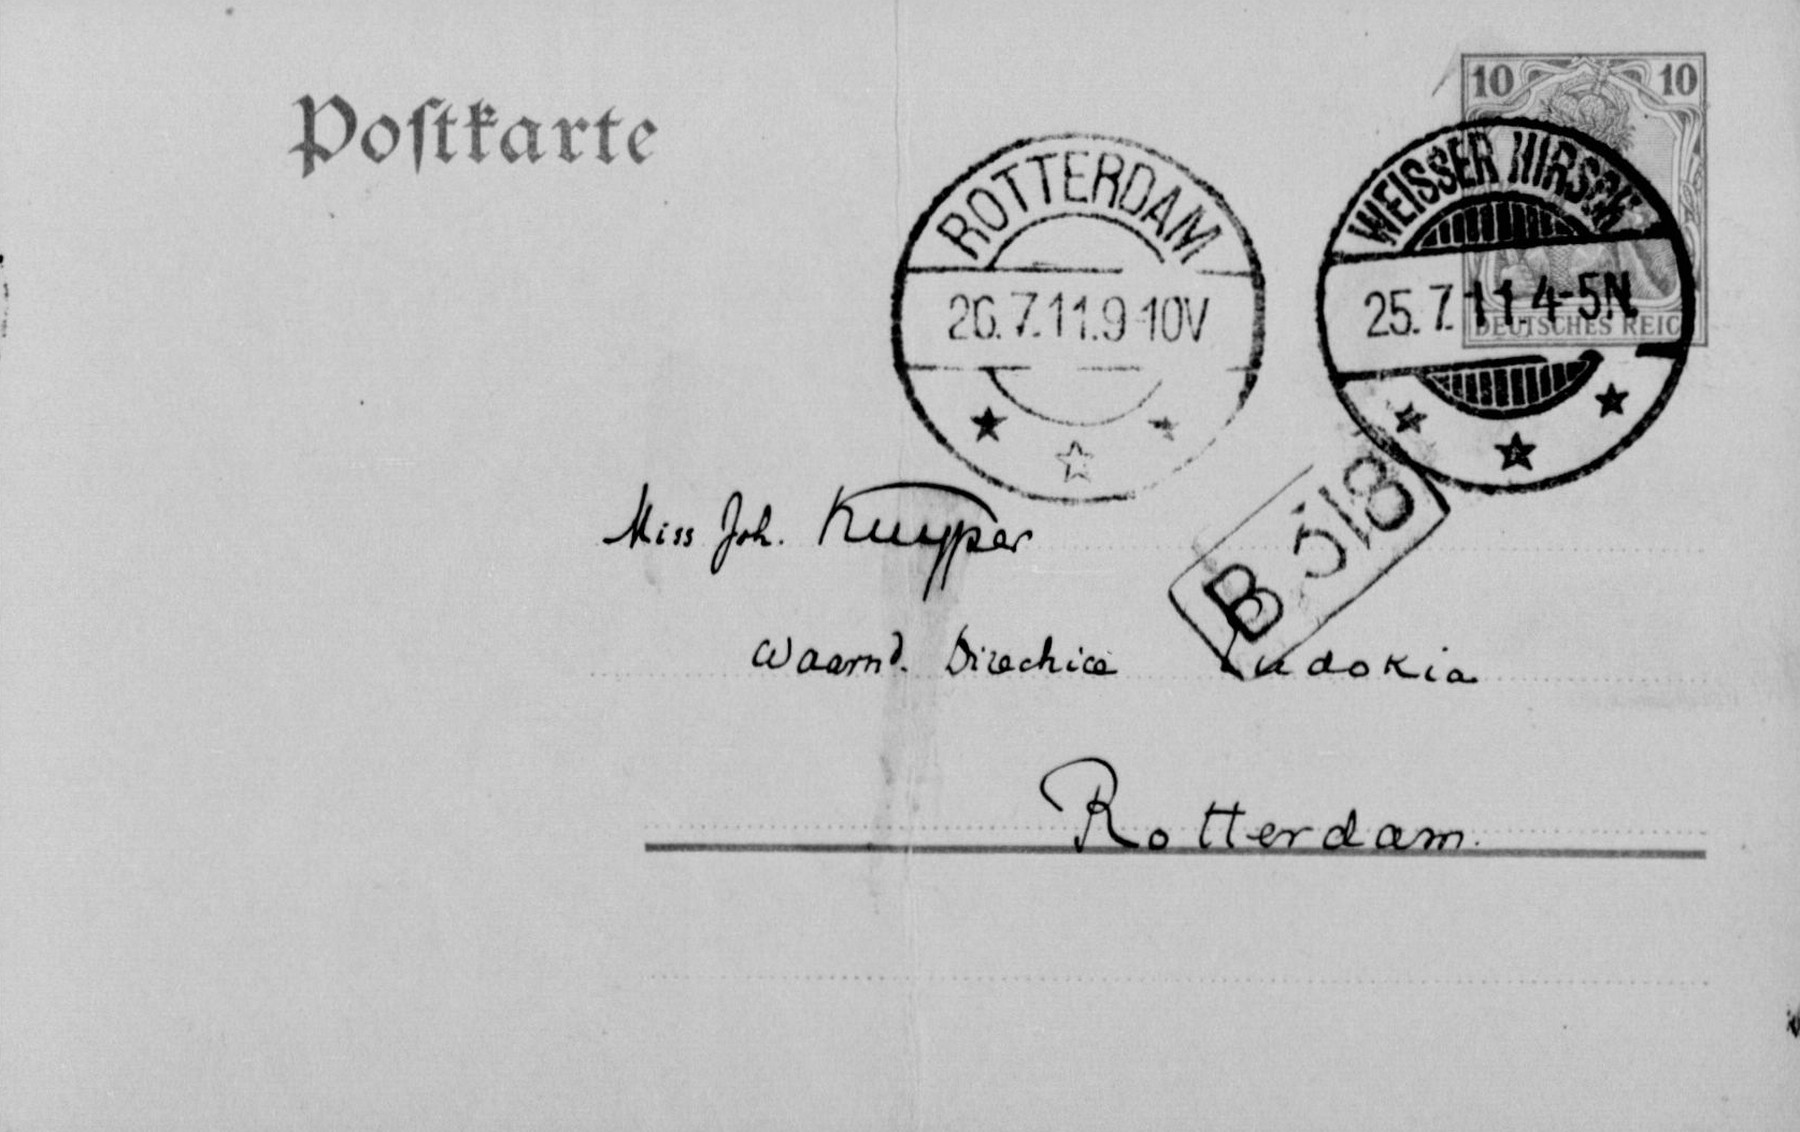 Postkarte
10 10
DEUTSCHES REICH
ROTTERDAM
26.7.11.9-10V
WEISSER HIRSCH
25.7.11.4-5N.
B 318
Miss Joh. Kuyper
Waarnd. Directrice Eudokia
Rotterdam.